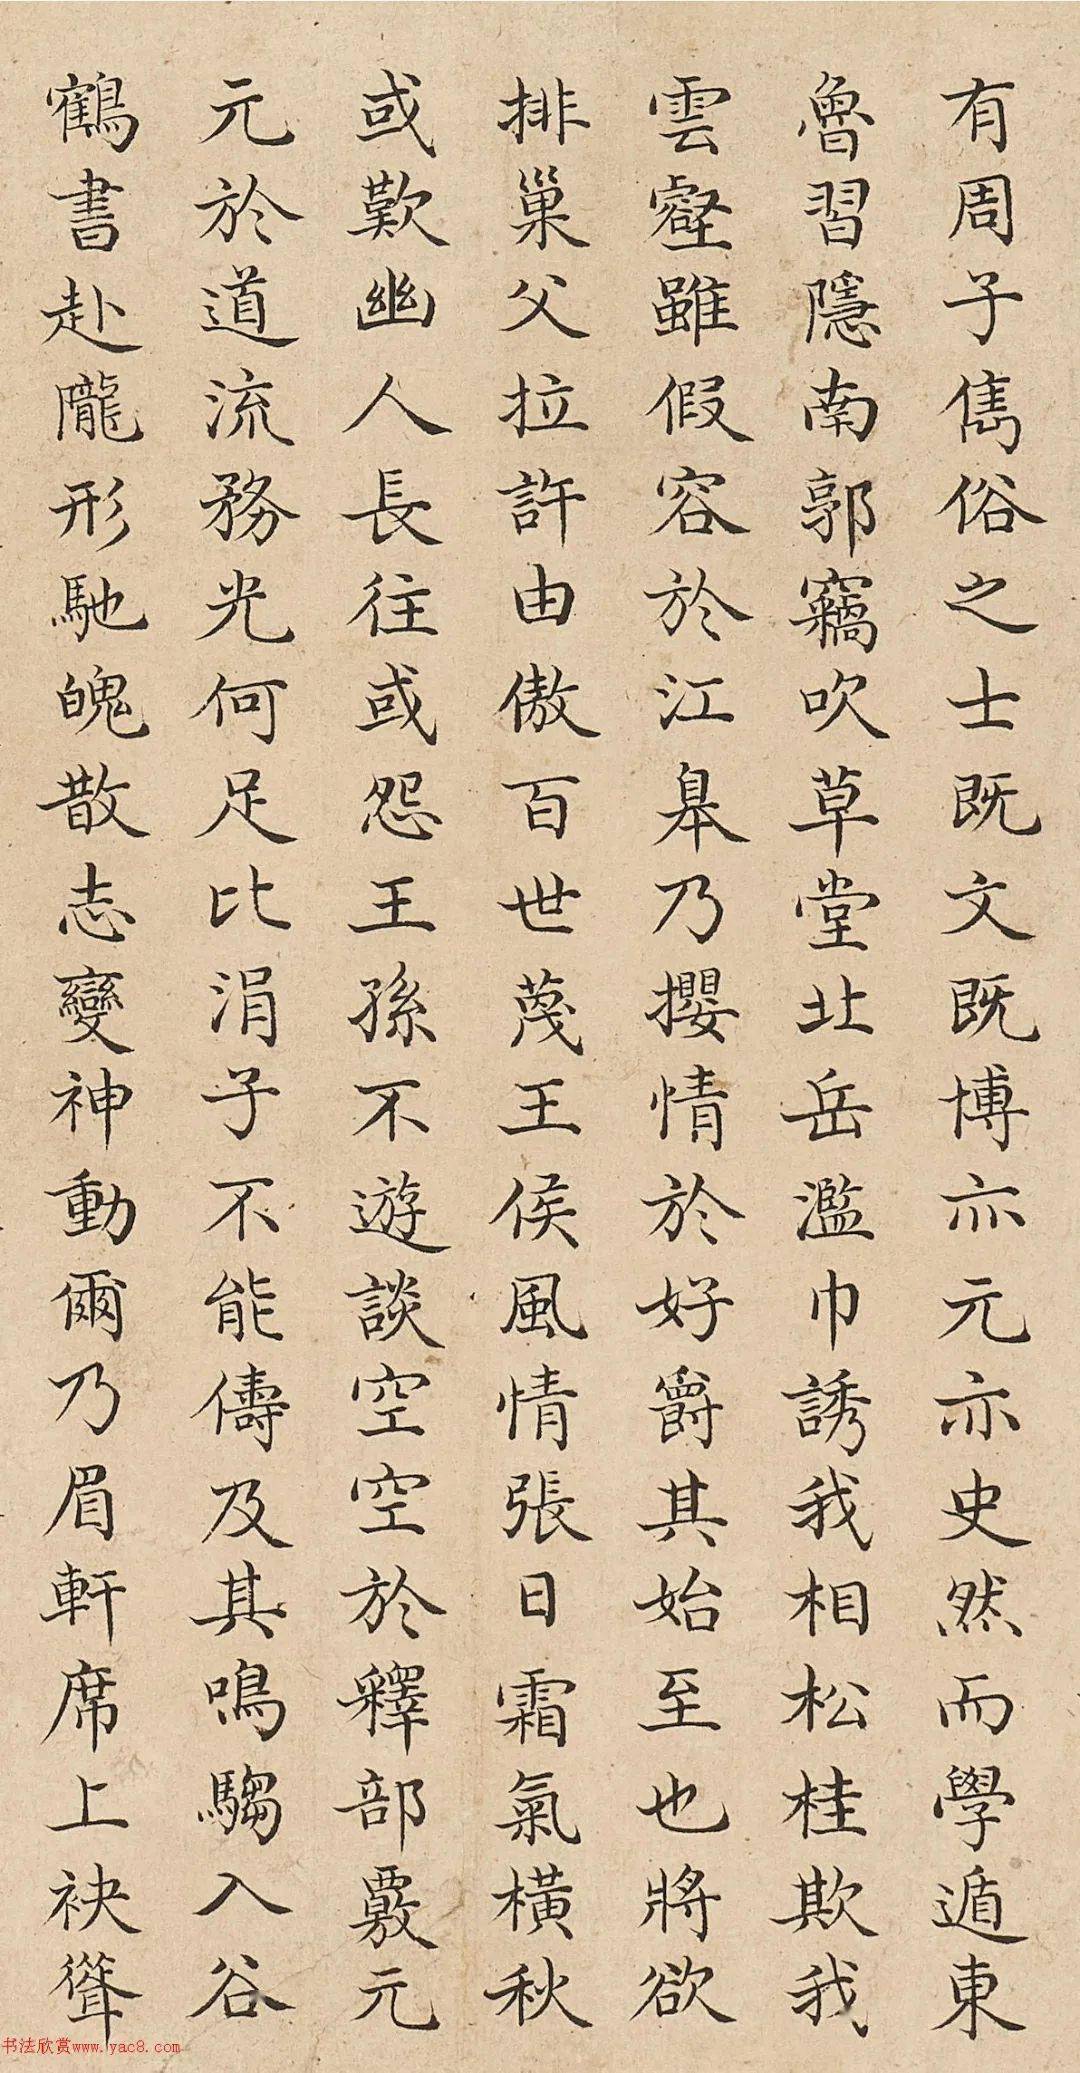 有周子雋俗之士既文既博亦元亦史然而學遁東
魯習隱南郭竊吹草堂北岳濫巾誘我相松桂欺我
雲壑雖假容於江皐乃攖情於好爵其始至也將欲
排巢父拉許由傲百世蔑王侯風情張日霜氣橫秋
或歎幽人長往或怨王孫不遊談空空於釋部覈元
元於道流務光何足比涓子不能儔及其鳴騶入谷
鶴書赴隴形馳魄散志變神動爾乃眉軒席上袂聳
书法欣赏www.yac8.com